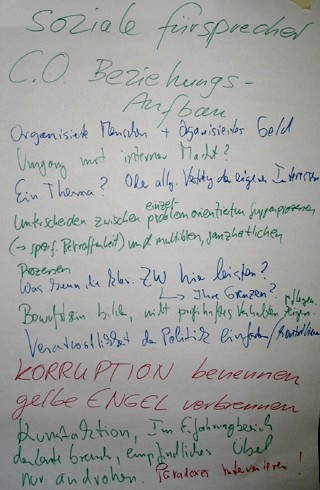 Soziale Fürsprecher
C.O. Beziehungs-
Aufbau
Organisierte Menschen + Organisiertes Geld
Umgang mit interner Macht?
Ein Thema? Oder allg. der eigenen Interessen
Unterscheiden zwischen einzel- problemorientierten Gruppenprozessen
(→ spezif. Betroffenheit) und multiblen, ganzheitlichen
Prozessen
Was kann die ZW hier leisten?
↳ Ihre Grenzen?
Bewußtsein bilden, nicht Verhalten pflegen, zeigen.
Verantwortlichkeit der Politik einfordern /
KORRUPTION benennen
gelbe ENGEL verbrennen
Kunstaktion, Im Erfahrungsbereich
der Leute empfindliches Übel
nur androhen. Paradoxes Intervenieren!